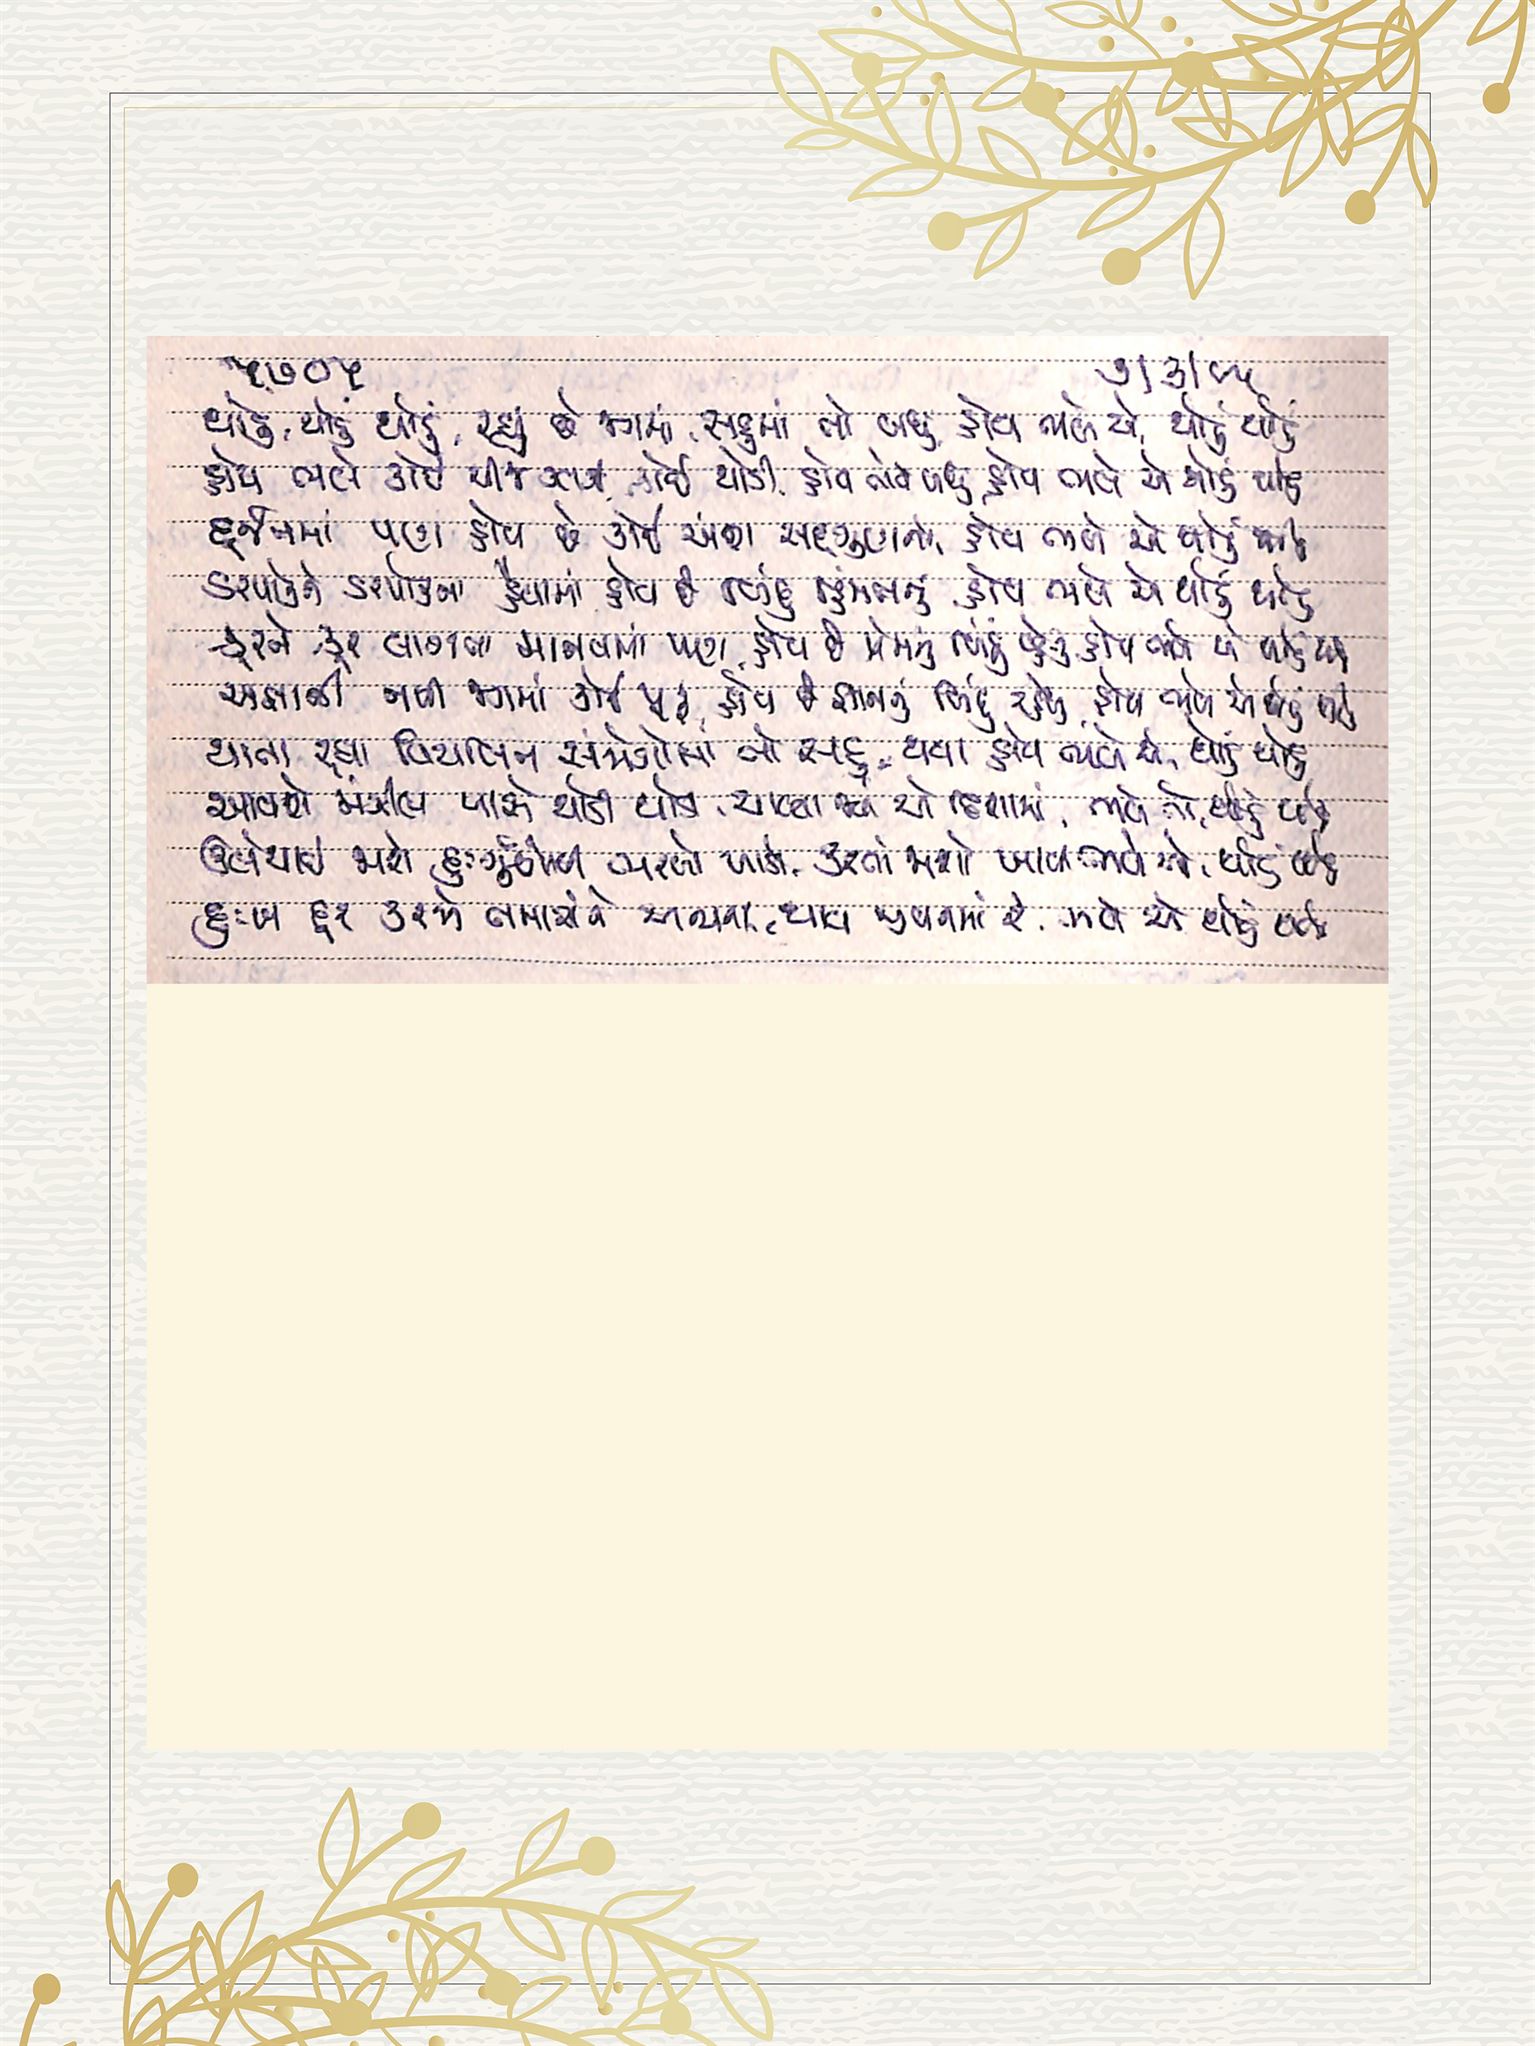 ૫૭૦૫ ૭/૩/૯૫
થોડું, થોડું થોડું, રહ્યું છે જગમાં, સહુમાં તો બધું, હોય ભલે એ, થોડું થોડું
હોય ભલે કોઈ ચીજ કોઈ થોડી, હોય બધું, હોય ભલે એ થોડું થોડું
દુર્જનમાં પણ હોય છે કોઈ અંશ સદ્ગુણનો, હોય ભલે એ થોડું થોડું
ડરપોકને ડરપોકના હૈયામાં હોય છે બિંદુ હિંમતનું, હોય ભલે એ થોડું થોડું
ક્રૂરને ક્રૂર લાગતા માનવમાં પણ, હોય છે પ્રેમનું બિંદું હોય ભલે એ થોડું થોડું
અજ્ઞાની નથી જગમાં કોઈ પૂરું, હોય છે જ્ઞાનનું બિંદુ રહેલું, હોય ભલે એ થોડું થોડું
થાતા રહ્યા વિચલિત સંજોગોમાં તો સહુ, થયા હોય ભલે એ, થોડું થોડું
આવશે મંઝીલ પાસે થોડી થોડી, ચાલ્યા જો એ દિશામાં, ભલે તો, થોડું થોડું
ઉલેચાઈ જાશે દુઃર્ગુણોથી ભરેલો કરતાં જાશો ખાલી ભલે એને, થોડું થોડું
દુઃખ દૂર કરજે તમાશંને અન્યના, થાય જીવનમાં રે, ભલે એ થોડું થોડું